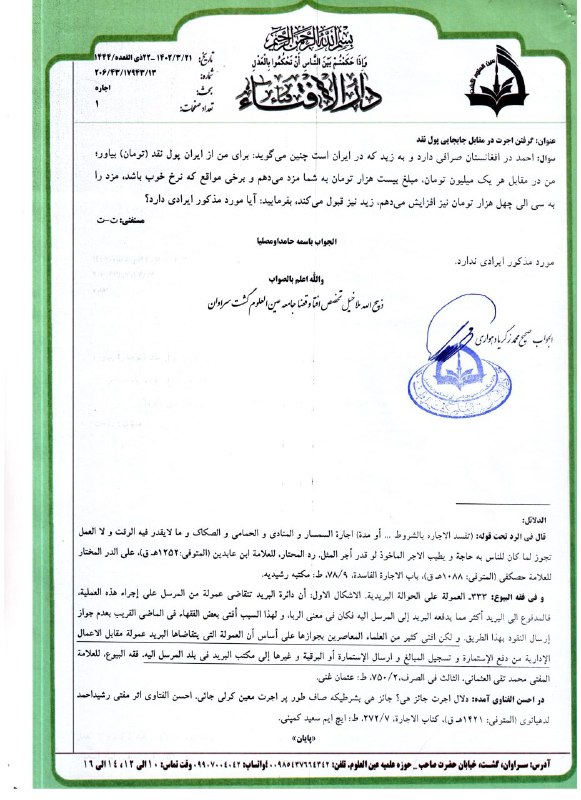 بسم الله الرحمن الرحیم
وَإِذَا حَكَمْتُمْ بَيْنَ النَّاسِ أَنْ تَحْكُمُوا بِالْعَدْلِ
دار الإفتاء
عین العلوم گشت
تاریخ: ۱۴۰۲/۳/۲۱ _۲۲ذی القعده/۱۴۴۴
شماره: ۲۰۶/۴۳/۱۷۹۴۳/۱۳
بحث: اجاره
تعداد صفحات: ۱
عنوان: گرفتن اجرت در مقابل جابجایی پول نقد
سوال: احمد در افغانستان صرافی دارد و به زید که در ایران است چنین می‌گوید: برای من از ایران پول نقد (تومان) بیاور؛
من در مقابل هر یک میلیون تومان، مبلغ بیست هزار تومان به شما مزد می‌دهم و برخی مواقع که نرخ خوب باشد، مزد را
به سی الی چهل هزار تومان نیز افزایش می‌دهم، زید نیز قبول می‌کند، بفرمایید: آیا مورد مذکور ایرادی دارد؟
مستفتی: ت–ت
الجواب باسمه حامداومصلیا
مورد مذکور ایرادی ندارد.
والله اعلم بالصواب
ذبیح الله ملاخیل تخصص افتا و قضا جامعه عین العلوم گشت سراوان
الجواب صحیح محمد زکریا دهواری
الدلائل:
قال فی الرد تحت قوله: (تفسد الاجاره بالشروط ... أو مدة) اجارة السمسار و المنادی و الحمامی و الصکاک و ما لایقدر فیه الوقت و لا العمل
تجوز لما کان للناس به حاجة و یطیب الاجر الماخوذ لو قدر أجر المثل. رد المحتار، للعلامة ابن عابدین (المتوفی:۱۲۵۲هـ ق)، علی الدر المختار
للعلامة حصکفی (المتوفی: ۱۰۸۸هـ ق)، باب الاجارة الفاسدة، ۷۸/۹، ط: مکتبه رشیدیه.
و فی فقه البیوع: ۳۳۳- العمولة علی الحوالة البریدیة. الاشکال الاول: أن دائرة البرید تتقاضی عمولة من المرسل علی إجراء هذه العملیة،
فالمدفوع الی البرید أکثر مما یدفعه البرید إلی المرسل الیه فکان فی معنی الربا، و لهذا السبب أفتی بعض الفقهاء فی الماضی القریب بعدم جواز
إرسال النقود بهذا الطریق. و لکن افتی کثیر من العلماء المعاصرین بجوازها علی أساس أن العمولة التی یتقاضاها البرید عمولة مقابل الاعمال
الإداریة من دفع الإستمارة و تسجیل المبالغ و ارسال الإستمارة أو البرقیة و غیرها إلی مکتب البرید فی بلد المرسل الیه. فقه البیوع، للعلامة
المفتی محمد تقی العثمانی، الثالث فی الصرف، ۷۵۰/۲، ط: عثمان غنی.
در احسن الفتاوی آمده: دلال اجرت جائز هی؟ جائز هی بشرطیکه صاف طور پر اجرت معین کرلی جائی. احسن الفتاوی اثر مفتی رشیداحمد
لدهیانوی (المتوفی: ۱۴۲۱هـ ق)، کتاب الاجارة، ۲۷۲/۷، ط: ایچ ایم سعید کمپنی.
«پایان»
آدرس: سراوان، گشت، خیابان حضرت صاحب _ حوزه علمیه عین العلوم. تلفن: ۰۰۹۸۵۴۳۷۶۶۴۳۴۲ /واتساپ: ۰۹۹۰۷۰۰۴۰۴۲ وقت تماس: ۱۰ الی ۱۲، ۱۴ الی ۱۶